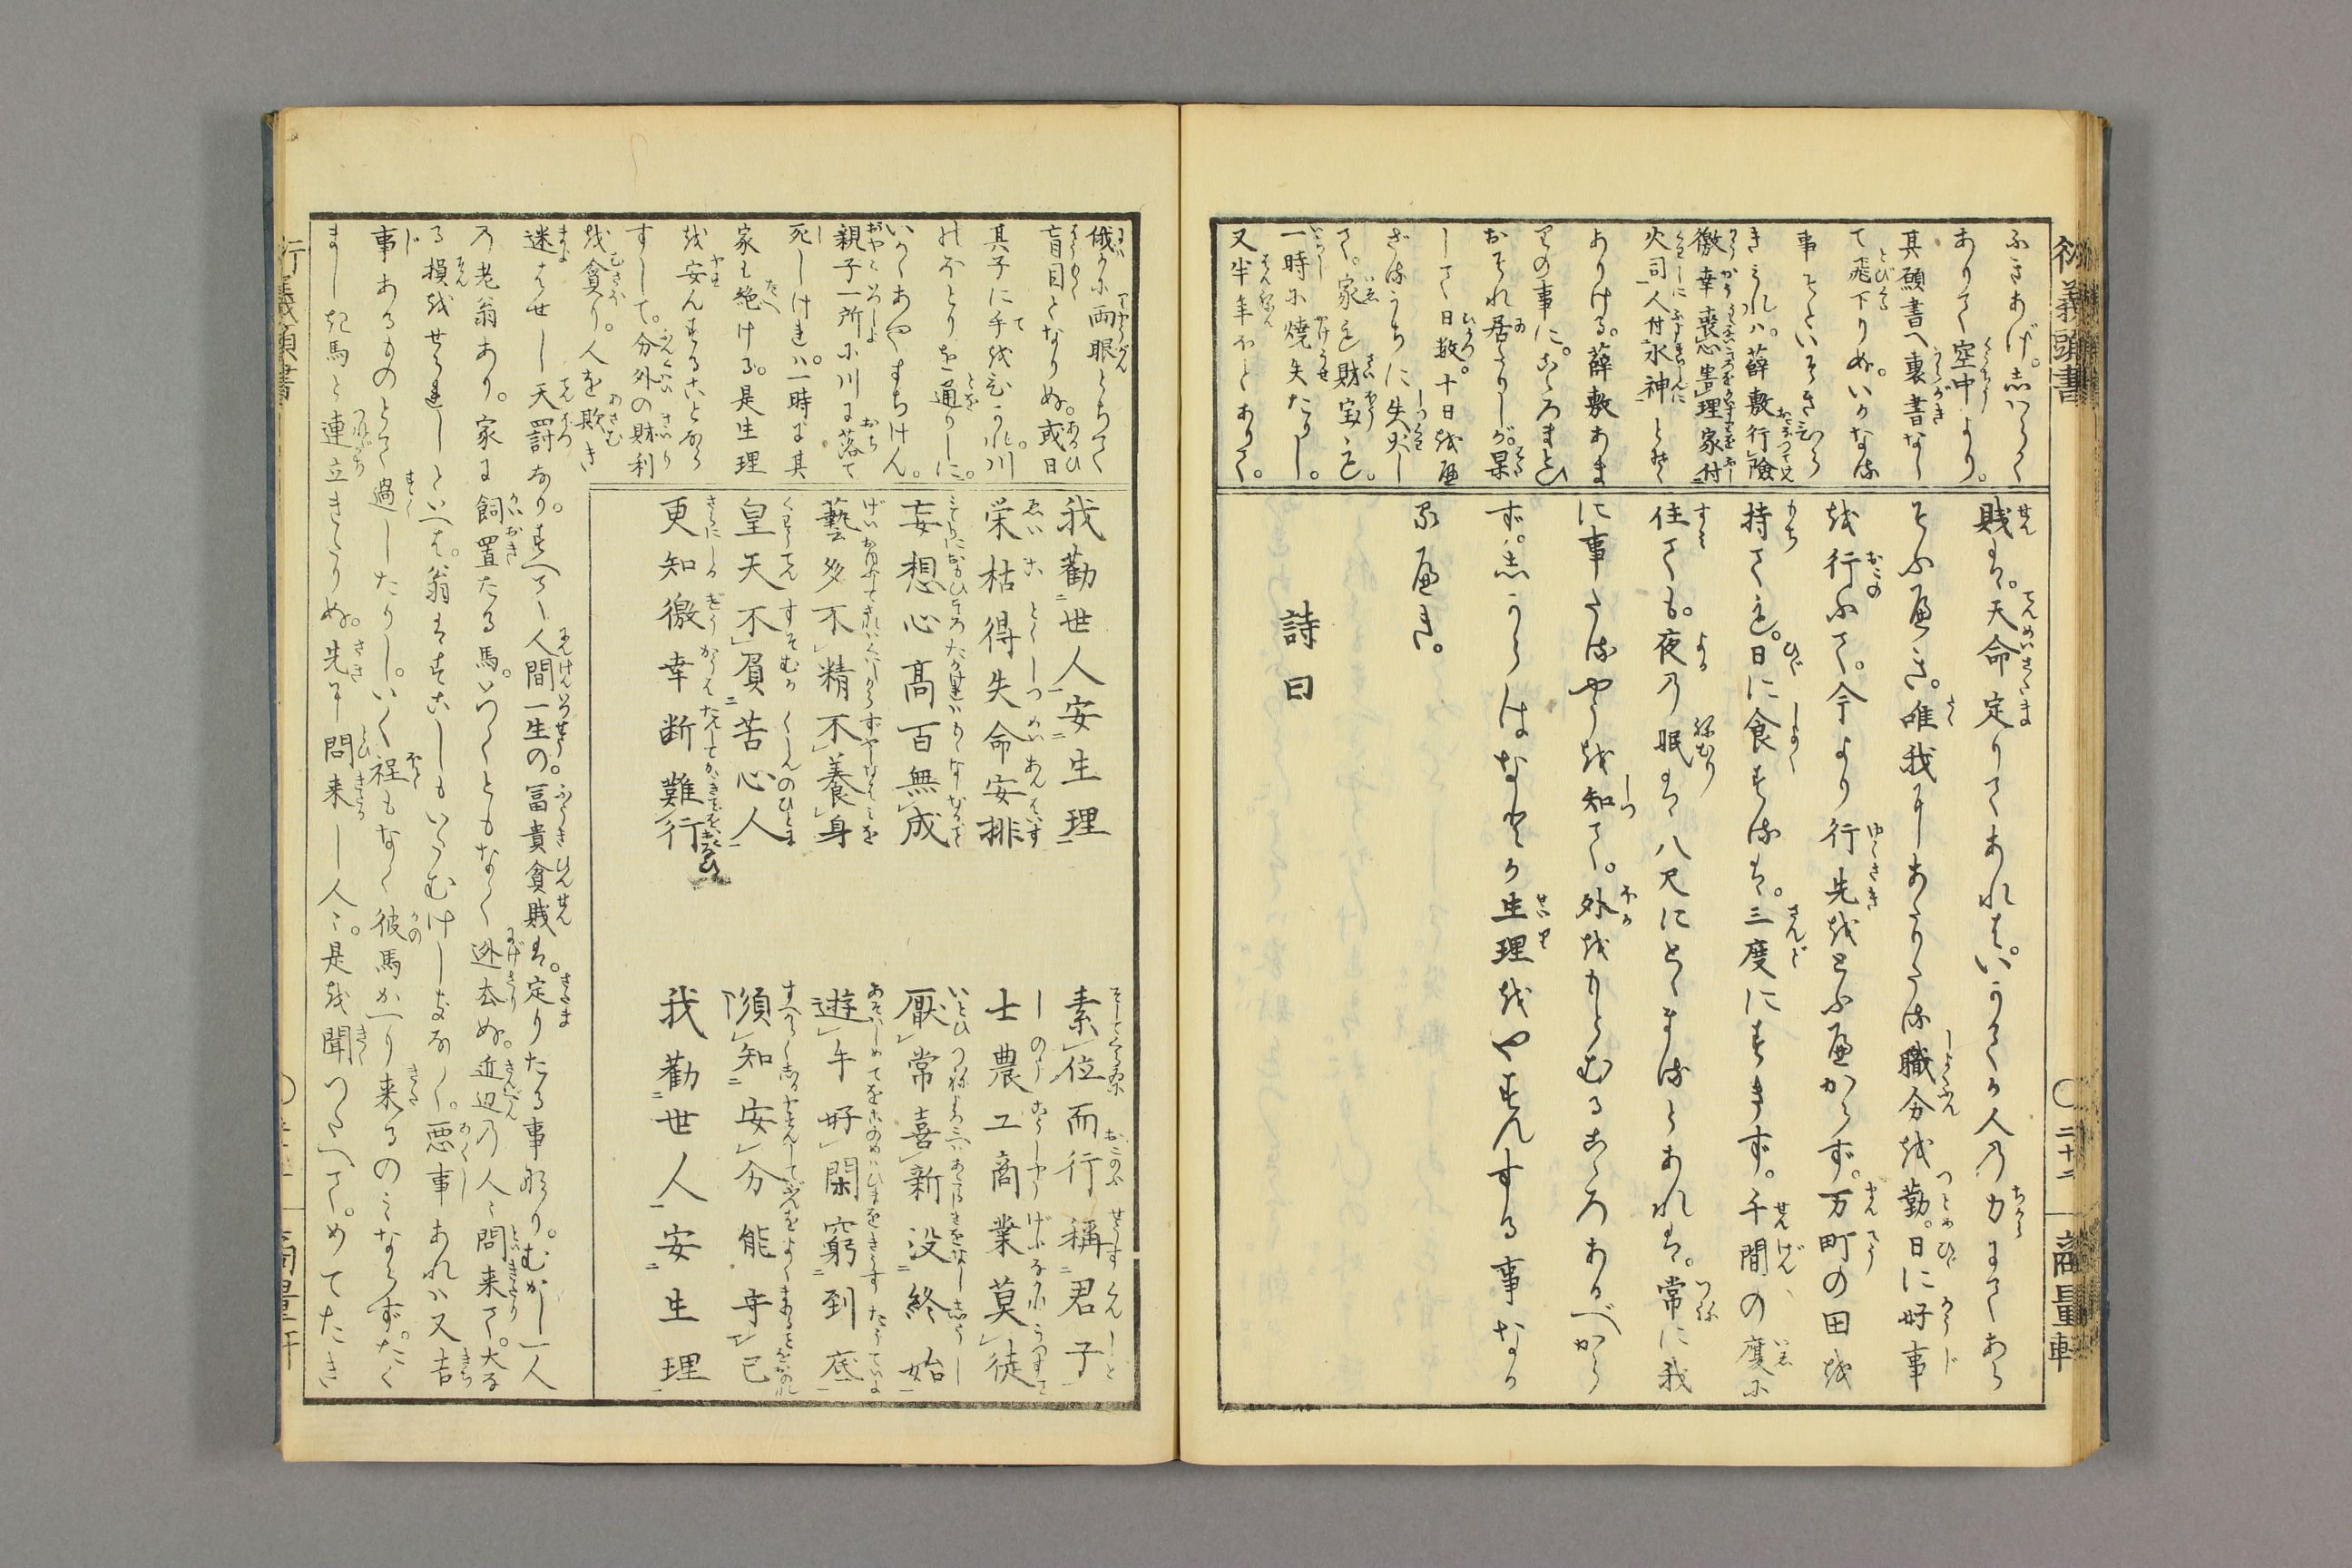 衍義頭書
ふきあげ。志バらく
ありて空中より。
其願書へ裏書なし
て飛下りぬ。いかなる
事ぞといそぎひら
きミれバ。薛敷行険
徼幸喪心害理家付
火司人付水神とぞ
ありける。薛敷あま
りの事に。こゝろまどひ
おそれ居たりしが。果
して日数。十日を歴
ざるうちに失火し
て。家も財宝も。
一時に焼失たりし。
又半年ほどありて。
賎は。天命定りてあれば。いかでか人の力にてあら
そふべき。唯我にあたりたる職分を勤。日に好事
を行ふて。今より行先をとふべからず。万町の田を
持ても。日に食するは。三度にすぎず。千間の廈に
住ても。夜の眠は八尺にとゞまるとあれば。常に我
に事たるやうを知て。外をもとむるこゝろあるべから
ず。志からばなどか生理をやすんずる事なか
るべき。
詩曰
二十二
商量軒
俄に両眼とぢて
盲目となりぬ。或日
其子に手をひかれ。川
のほとりを通りしに。
いかゞあやまちけん。
親子一所に川に落て
死しければ。一時に其
家も絶ける。是生理
を安んずることなら
ずして。分外の財利
を貪り。人を欺き
迷はせし天罰なり。すべて人間一生の冨貴貧賎は。定りたる事なり。むかし一人
の老翁あり。家に飼置たる馬。いづくともなく逃去ぬ。近辺の人々問来て。大な
る損をせられしといへば。翁はすこしもいたむけしきなく。悪事あれバ又吉
事あるものとて過したりし。いく程もなく彼馬かへり来るのミならず。たく
ましき馬と連立きたりぬ。先に問来し人々。是を聞つたへて。めでたき
我勧世人安生理
栄枯得失命安排
妄想心高百無成
藝多不精不養身
皇天不負苦心人
更知徼幸断難行
素位而行稱君子
士農工商業莫徒
厭常喜新没終始
遊手好閑窮到底
須知安分能守已
我勧世人安生理
行義頭書
商量軒